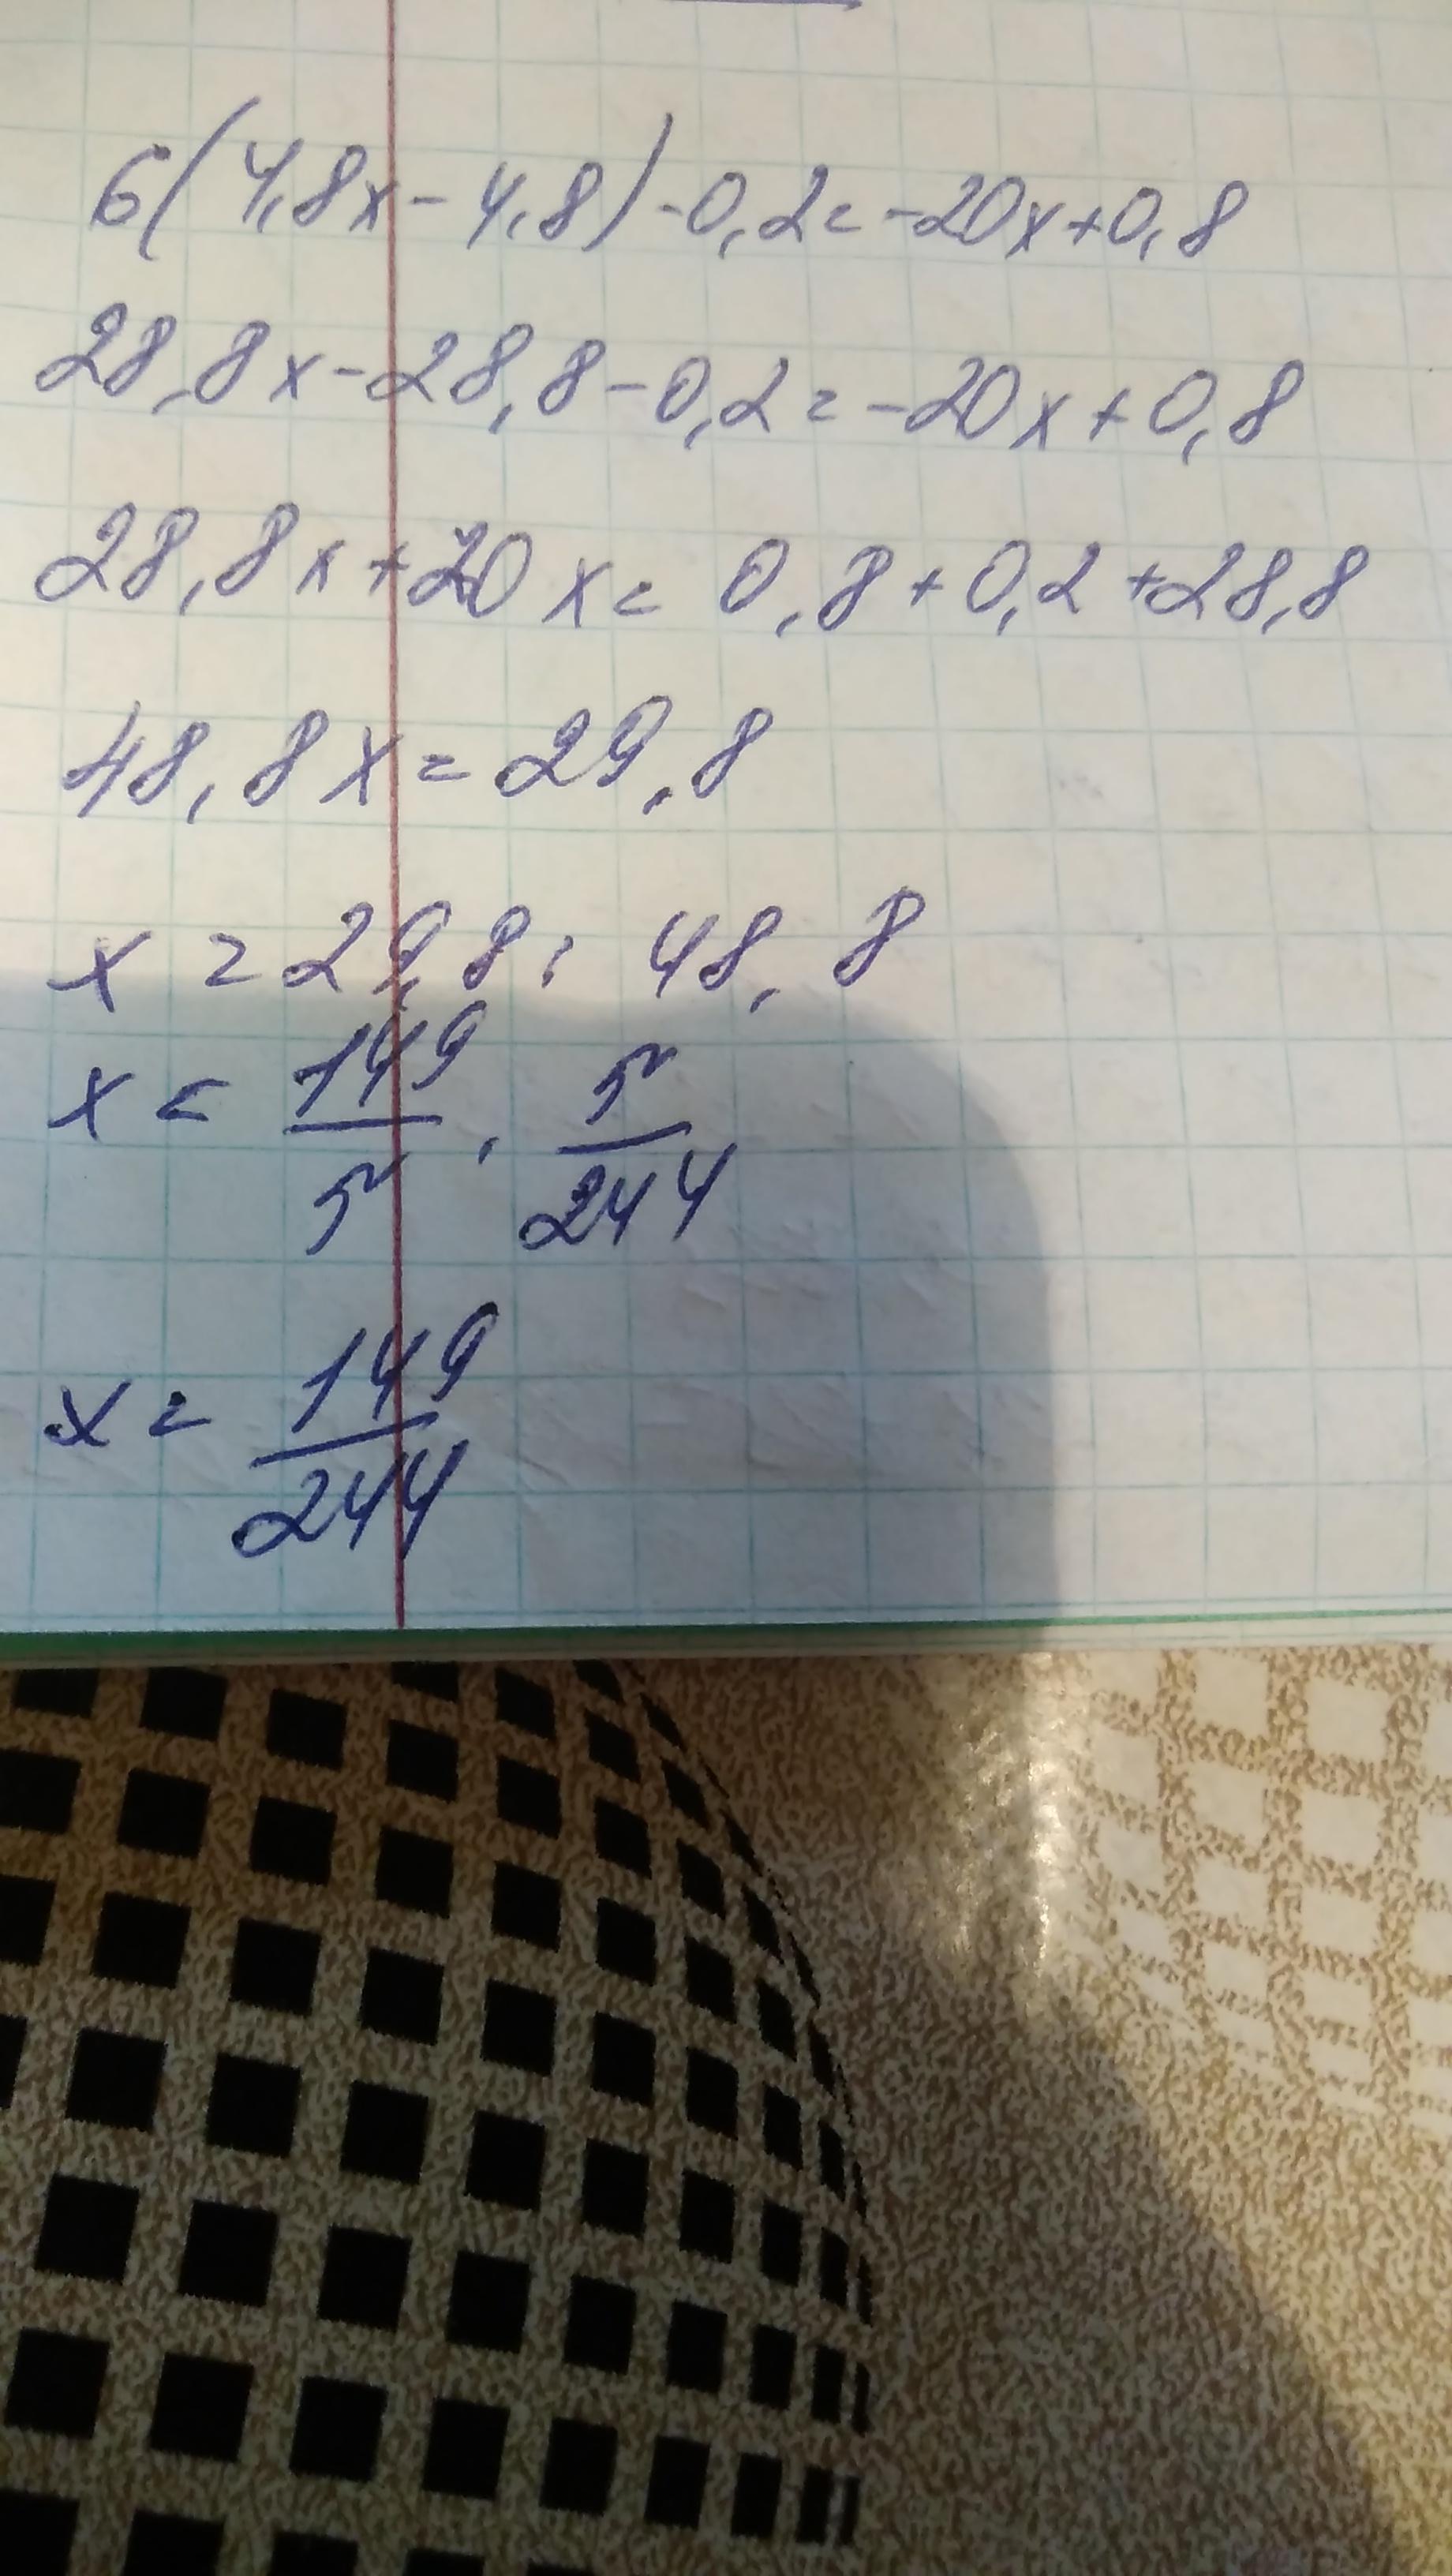 6(4,8x-4,8)-0,2=-20x+0,8
28,8x-28,8-0,2=-20x+0,8
28,8x+20x=0,8+0,2+28,8
48,8x=29,8
x=29,8:48,8
x=149/5·5/244
x=149/244